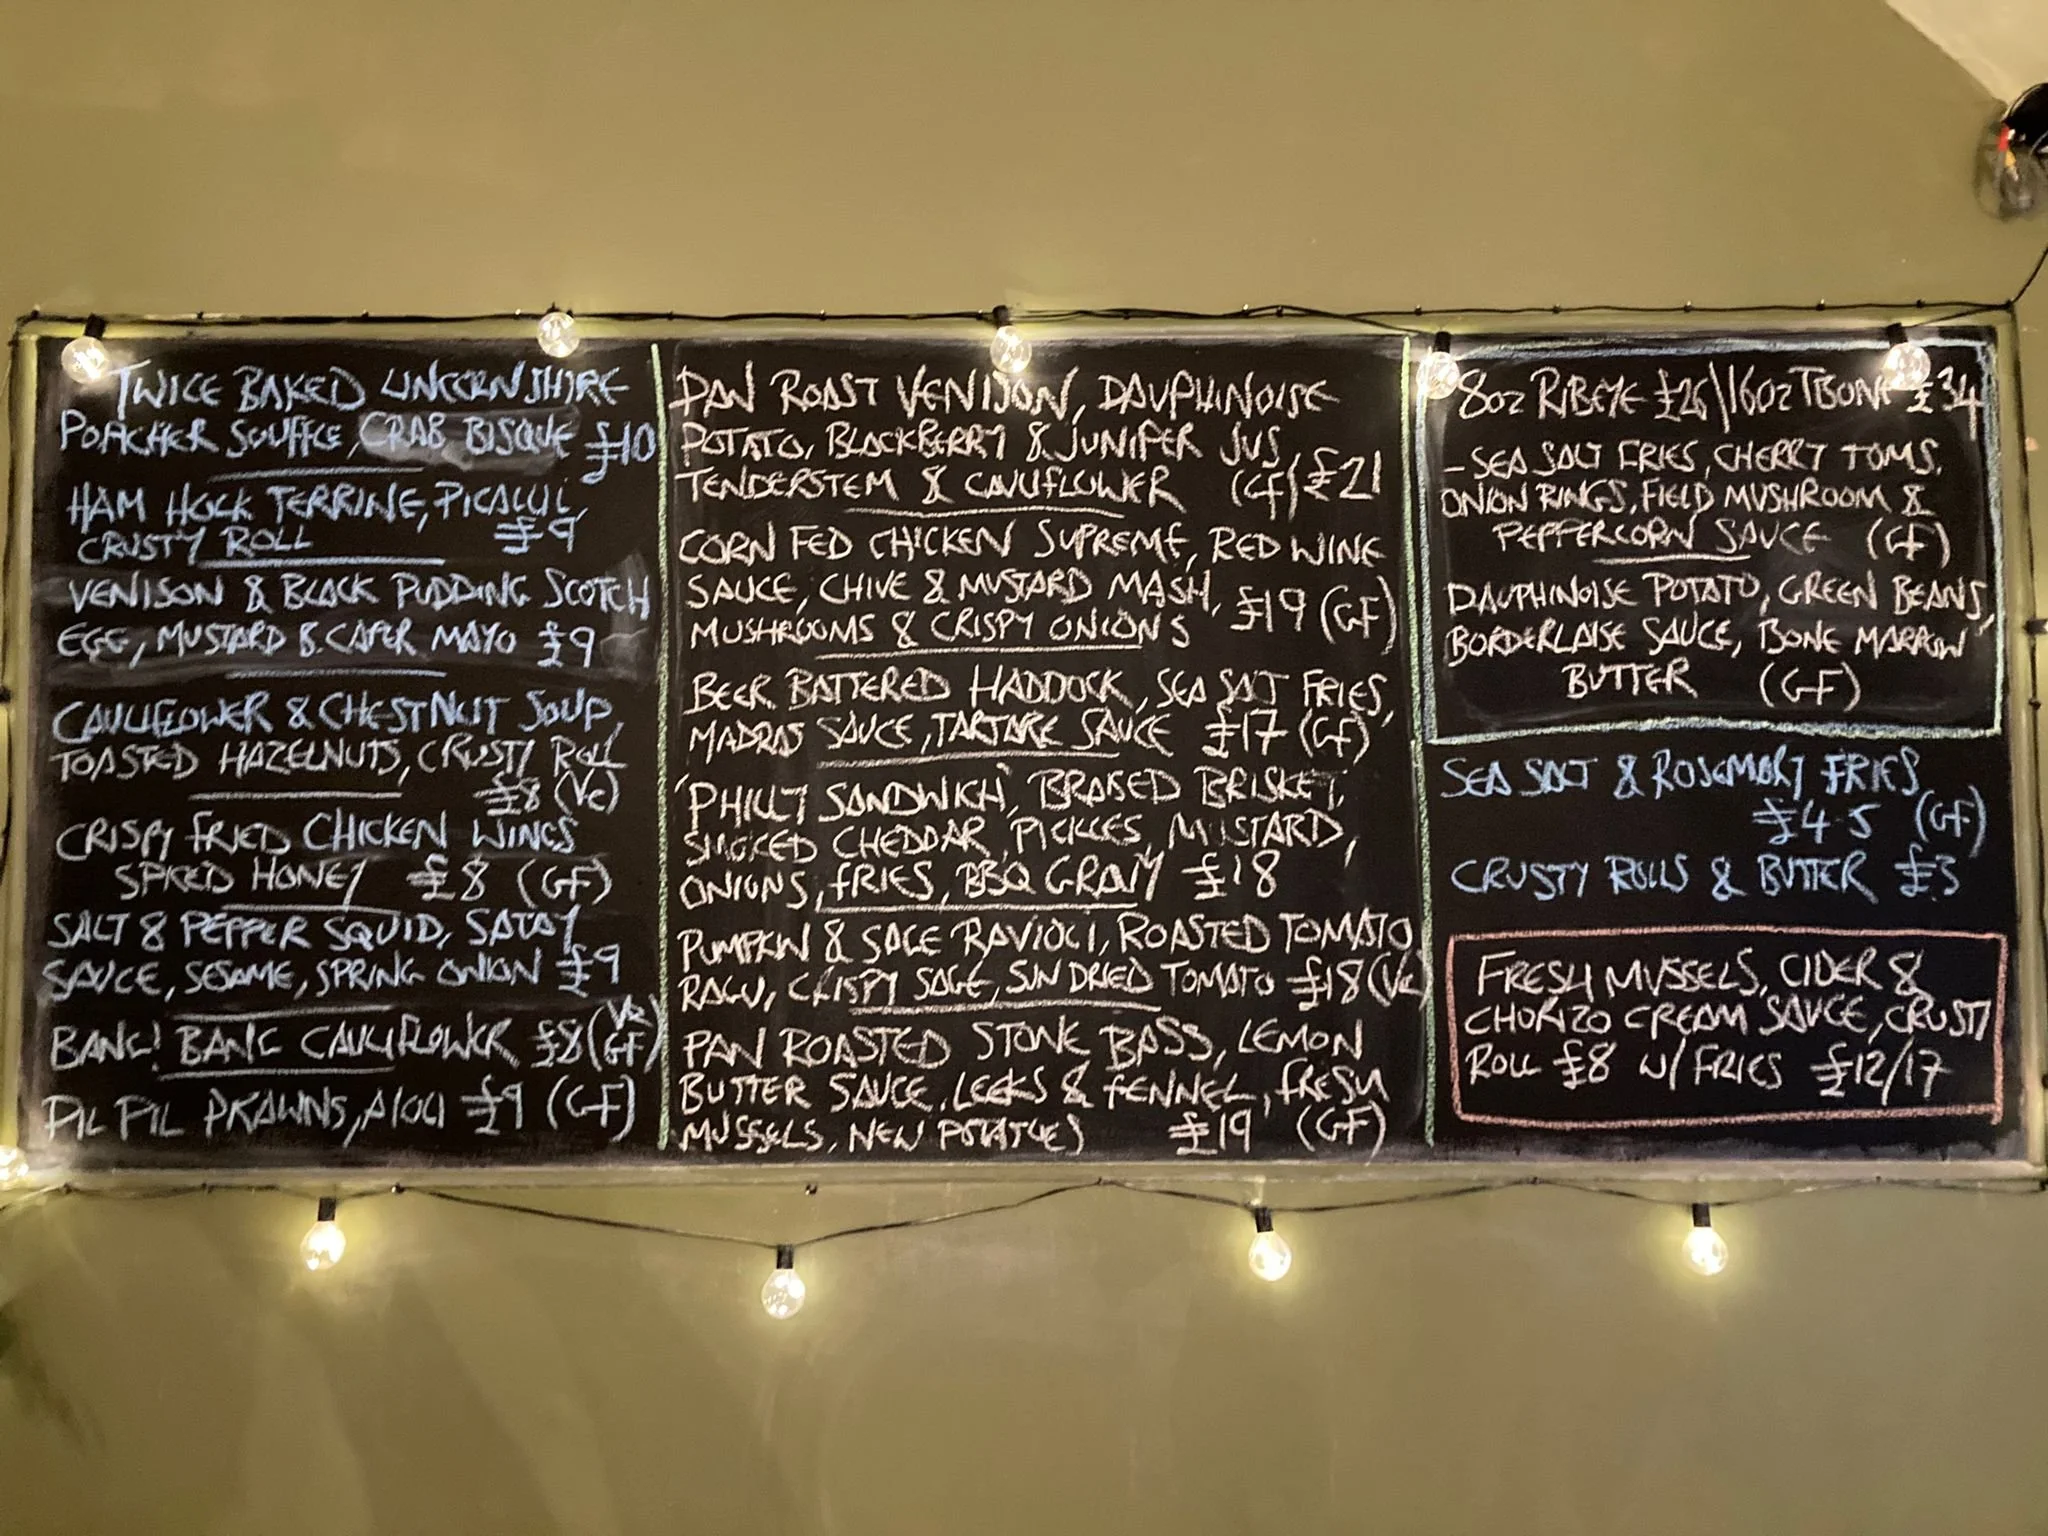 TWICE BAKED LINCOLNSHIRE
POACHER SOUFFLE, CRAB BISQUE £10
HAM HOCK TERRINE, PICALLILI,
CRUSTY ROLL £9
VENISON & BLACK PUDDING SCOTCH
EGG, MUSTARD & CAPER MAYO £9
CAULIFLOWER & CHESTNUT SOUP,
TOASTED HAZELNUTS, CRUSTY ROLL
£8 (VE)
CRISPY FRIED CHICKEN WINGS
SPICED HONEY £8 (GF)
SALT & PEPPER SQUID, SATAY
SAUCE, SESAME, SPRING ONION £9
BANG! BANG CAULIFLOWER £8 (VE GF)
PIL PIL PRAWNS, AIOLI £9 (GF)
PAN ROAST VENISON, DAUPHINOISE
POTATO, BLACKBERRY & JUNIPER JUS,
TENDERSTEM & CAULIFLOWER (GF) £21
CORN FED CHICKEN SUPREME, RED WINE
SAUCE, CHIVE & MUSTARD MASH,
MUSHROOMS & CRISPY ONIONS £19 (GF)
BEER BATTERED HADDOCK, SEA SALT FRIES,
MADRAS SAUCE, TARTARE SAUCE £17 (GF)
'PHILLY SANDWICH', BRAISED BRISKET,
SMOKED CHEDDAR, PICKLES, MUSTARD,
ONIONS, FRIES, BBQ GRAVY £18
PUMPKIN & SAGE RAVIOLI, ROASTED TOMATO
RAGU, CRISPY SAGE, SUN DRIED TOMATO £18 (VE)
PAN ROASTED STONE BASS, LEMON
BUTTER SAUCE, LEEKS & FENNEL, FRESH
MUSSELS, NEW POTATOES £19 (GF)
8oz RIBEYE £26 \ 16oz TBONE £34
- SEA SALT FRIES, CHERRY TOMS,
ONION RINGS, FIELD MUSHROOM &
PEPPERCORN SAUCE (GF)
DAUPHINOISE POTATO, GREEN BEANS,
BORDERLAISE SAUCE, BONE MARROW
BUTTER (GF)
SEA SALT & ROSEMARY FRIES
£4.5 (GF)
CRUSTY ROLLS & BUTTER £3
FRESH MUSSELS, CIDER &
CHORIZO CREAM SAUCE, CRUSTY
ROLL £8 W/ FRIES £12/17